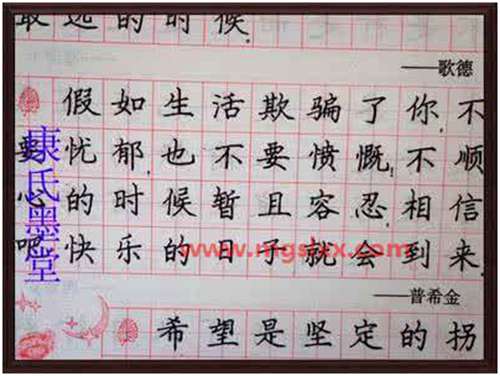 最远的时候.
——歌德
假如生活欺骗了你,不
要忧郁,也不要愤慨,不顺
心的时候暂且容忍,相信
吧快乐的日子就会到来.
——普希金
希望是坚定的拐
康氏墨堂